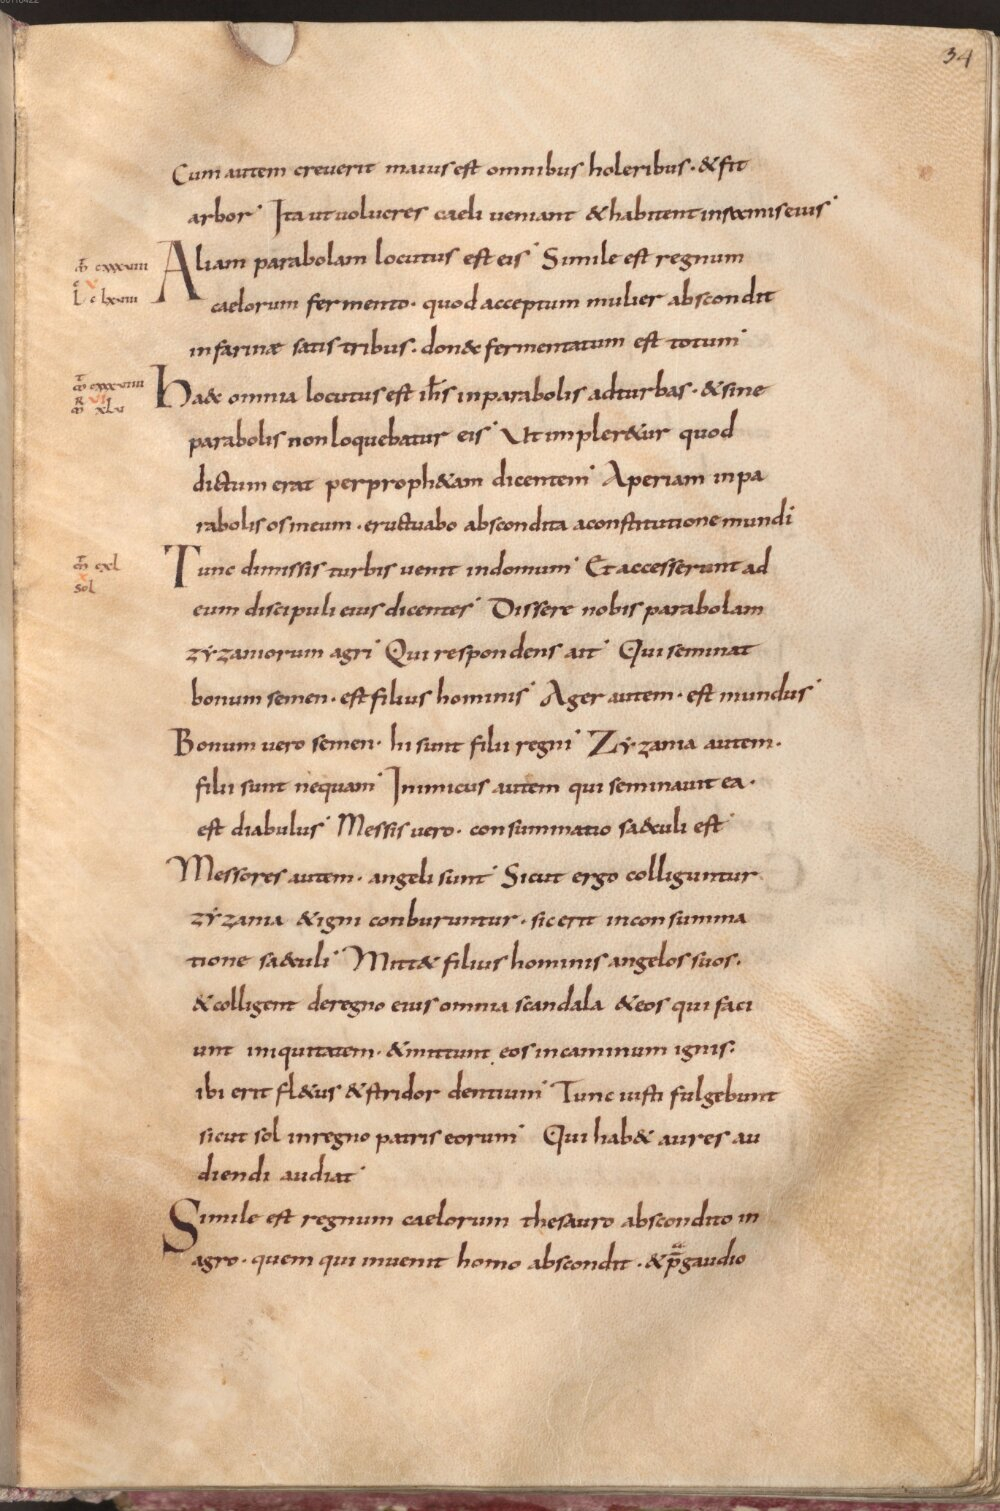 34
Cum autem creuerit maius est omnibus holeribus · & fit
arbor · Ita ut uolucres caeli ueniant & habitent in ramis eius ·
m̄ cxxxuiii
Aliam parabolam locutus est eis · Simile est regnum
L clxuiii
caelorum fermento · quod acceptum mulier abscondit
in farinae satis tribus · don& fermentatum est totum ·
m̄ cxxxuiiii
Haec omnia locutus est ih̄s in parabolis ad turbas · & sine
m̄ xlu
parabolis non loquebatur eis · Ut impler&ur quod
dictum erat per proph&am dicentem · Aperiam in pa
rabolis os meum · eructuabo abscondita a constitutione mundi
m̄ cxl
Tunc dimissis turbis uenit in domum · Et accesserunt ad
x
sol
eum discipuli eius dicentes · Dissere nobis parabolam
zyzaniorum agri · Qui respondens ait · Qui seminat
bonum semen · est filius hominis · Ager autem · est mundus ·
Bonum uero semen · hi sunt filii regni · Zyzania autem ·
filii sunt nequam · Inimicus autem qui seminauit ea ·
est diabulus · Messis uero · consummatio saeculi est ·
Messores autem · angeli sunt · Sicut ergo colliguntur
zyzania & igni conburuntur · sic erit in consumma
tione saeculi · Mitt& filius hominis angelos suos ·
& colligent de regno eius omnia scandala & eos qui faci
unt iniquitatem · & mittunt eos in caminum ignis ·
ibi erit fl&us & stridor dentium · Tunc iusti fulgebunt
sicut sol in regno patris eorum · Qui hab& aures au
diendi audiat ·
Simile est regnum caelorum thesauro abscondito in
agro · quem qui inuenit homo abscondit · & p̄ gaudio